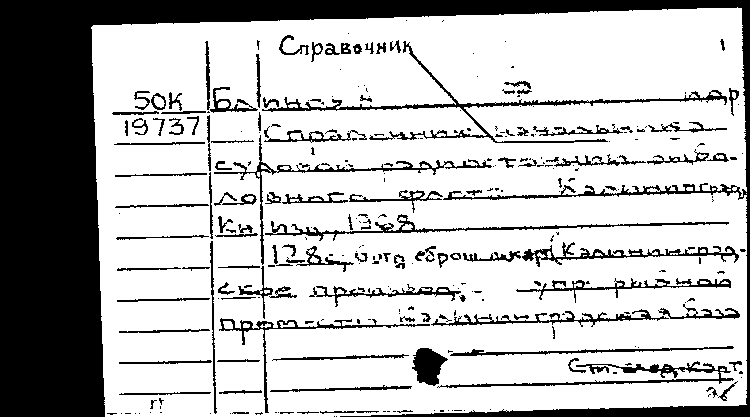 Справочник
50К Блинов А Ф и др
19737 Справочник начальника
судовой радиостанции рыбо-
ловного флота Калининград,
Кн изд, 1968
128с, сброш (Калининград-
ское производ. упр рыбной
пром-сти Калининградская база
См. след. карт.